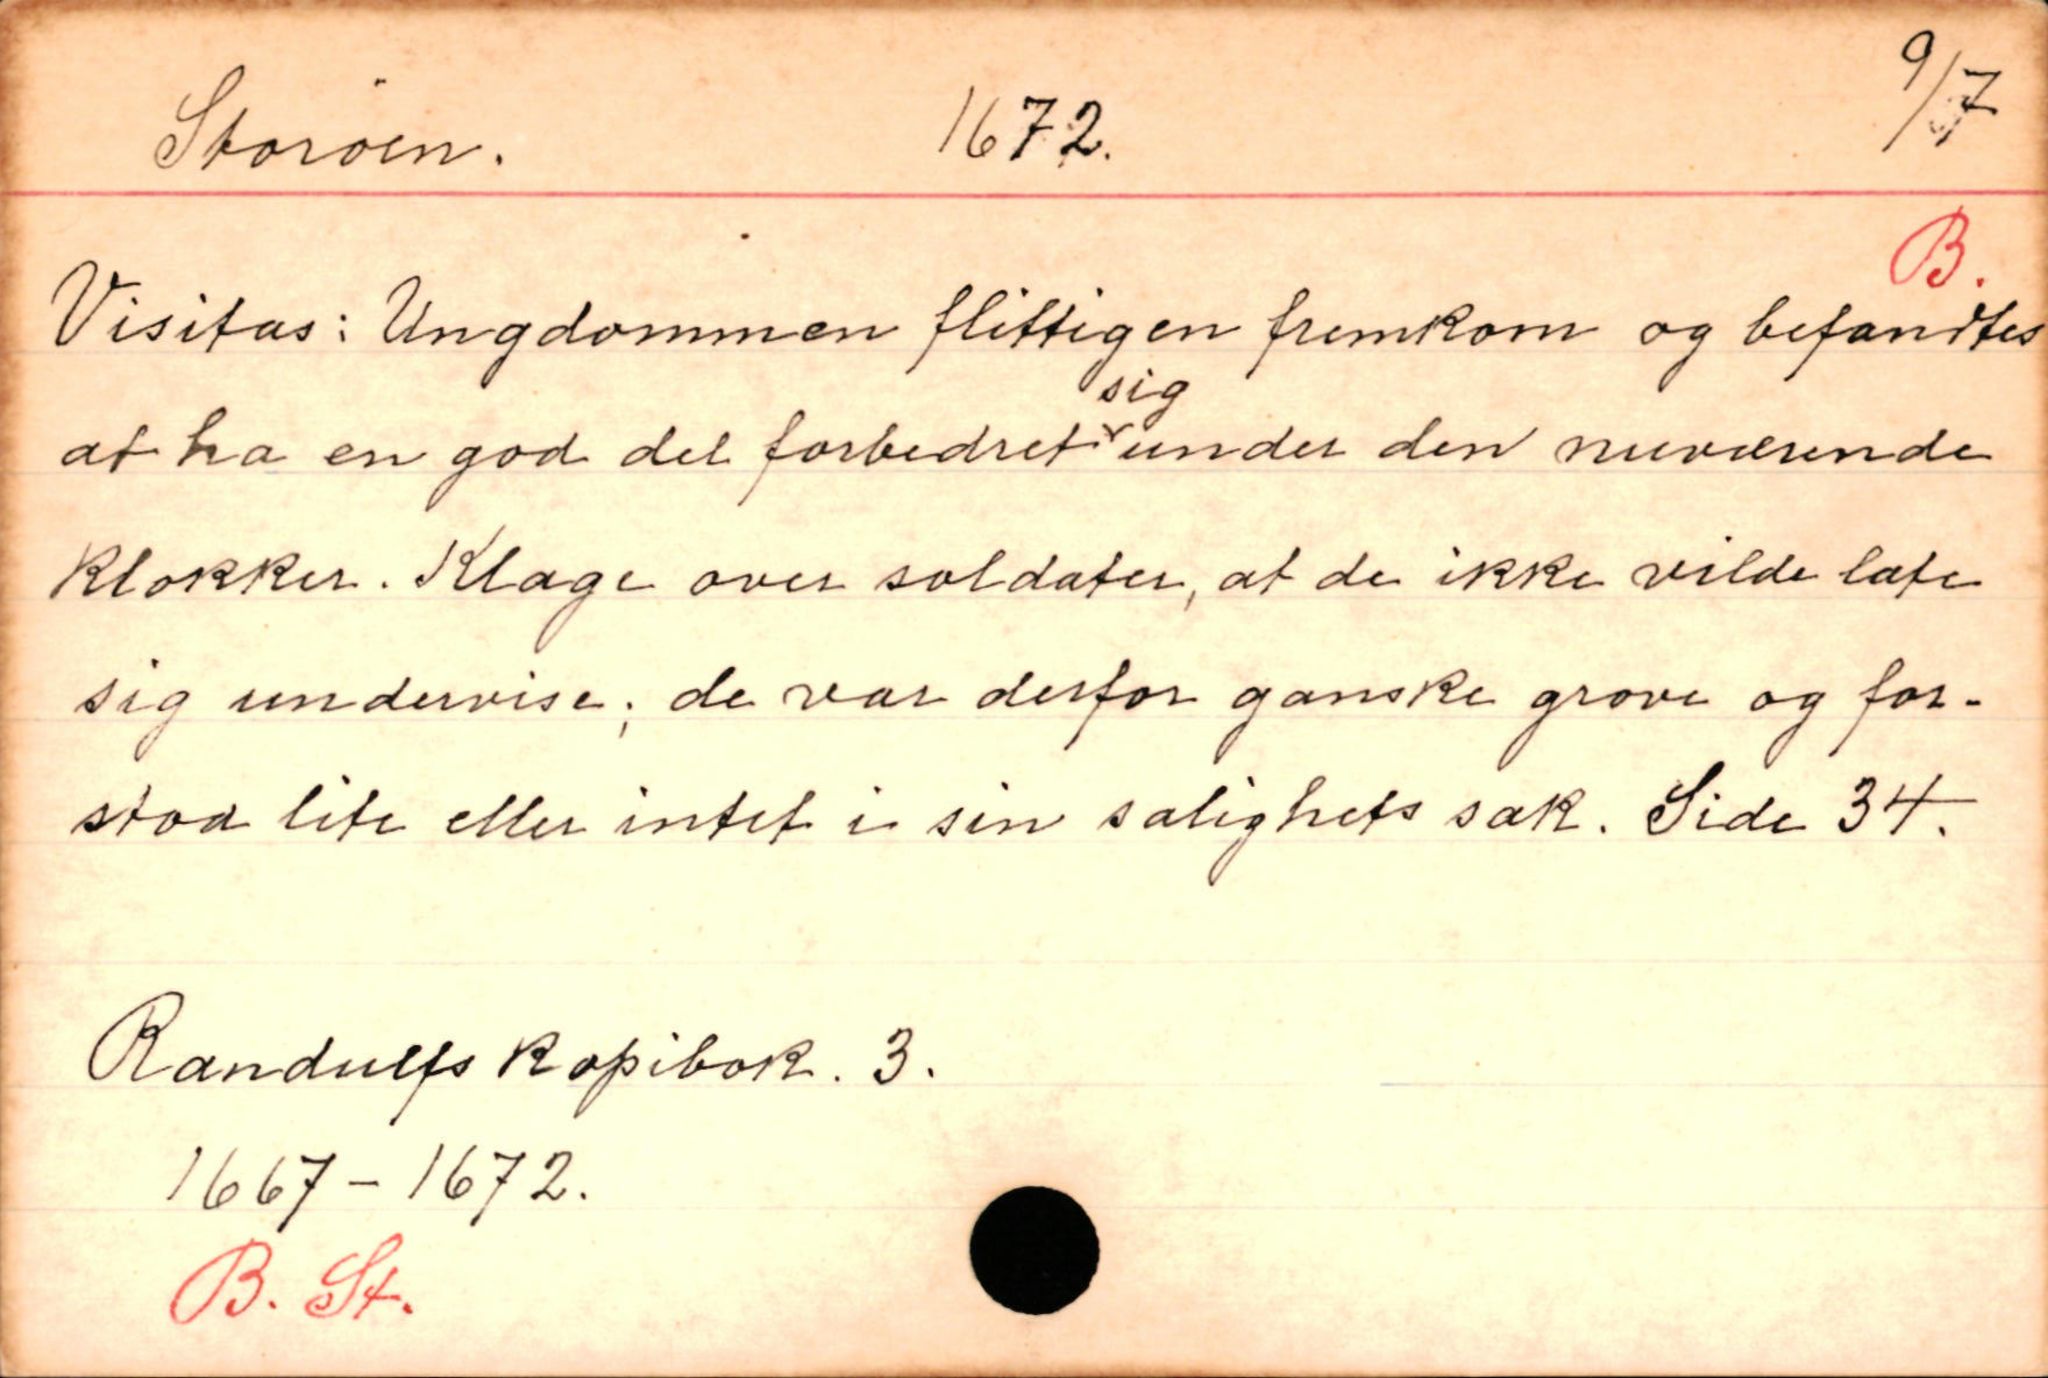 Storöen. 1672. 9/7
B.
Visitas: Ungdommen flittigen fremkom og befandtes
at ha en god del forbedret sig under den nuværende
klokker. Klage over soldater, at de ikke vilde late
sig undervise; de var derfor ganske grove og for-
stod lite eller intet i sin salighets sak. Side 34.
Randulfs kopibok. 3.
1667-1672.
B. St.